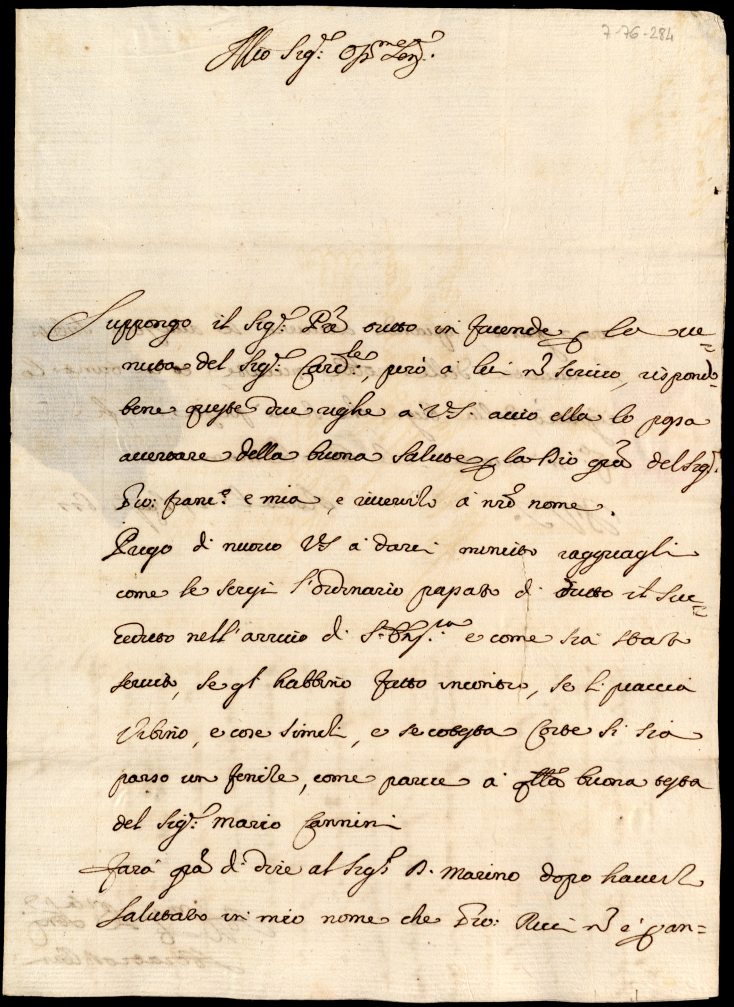 7-76-284
Ill.mo Sig.r
Suppongo il Sig.r Pre tutto in facende p la ve=
nuta del Sig.r Card.le, però à lui nõ scrivo, rispondo
bene queste due righe à VS. acciò ella lo possa
accertare della buona salute p la Dio grã del Sig.r
Gio: Franc.o e mia, e riverirlo à nrõ nome.
Prego di nuovo VS à darci minuto ragguagli
come le scrissi l'ordinario passato di tutto il suc=
ceduto nell'arrivo di S. e come sia stato
servito, se gl'habbino fatto incontro, se li piaccia
Urbino, e cose simili, e se cotesta Corte si sia
parso un fenile, come parve à qllã buona testa
del Sig.r Mario Cannini
Farà grã di dire al Sig.r D. Marino dopo haverlo
salutato in mio nome che Gio: Ricci nõ è p an=